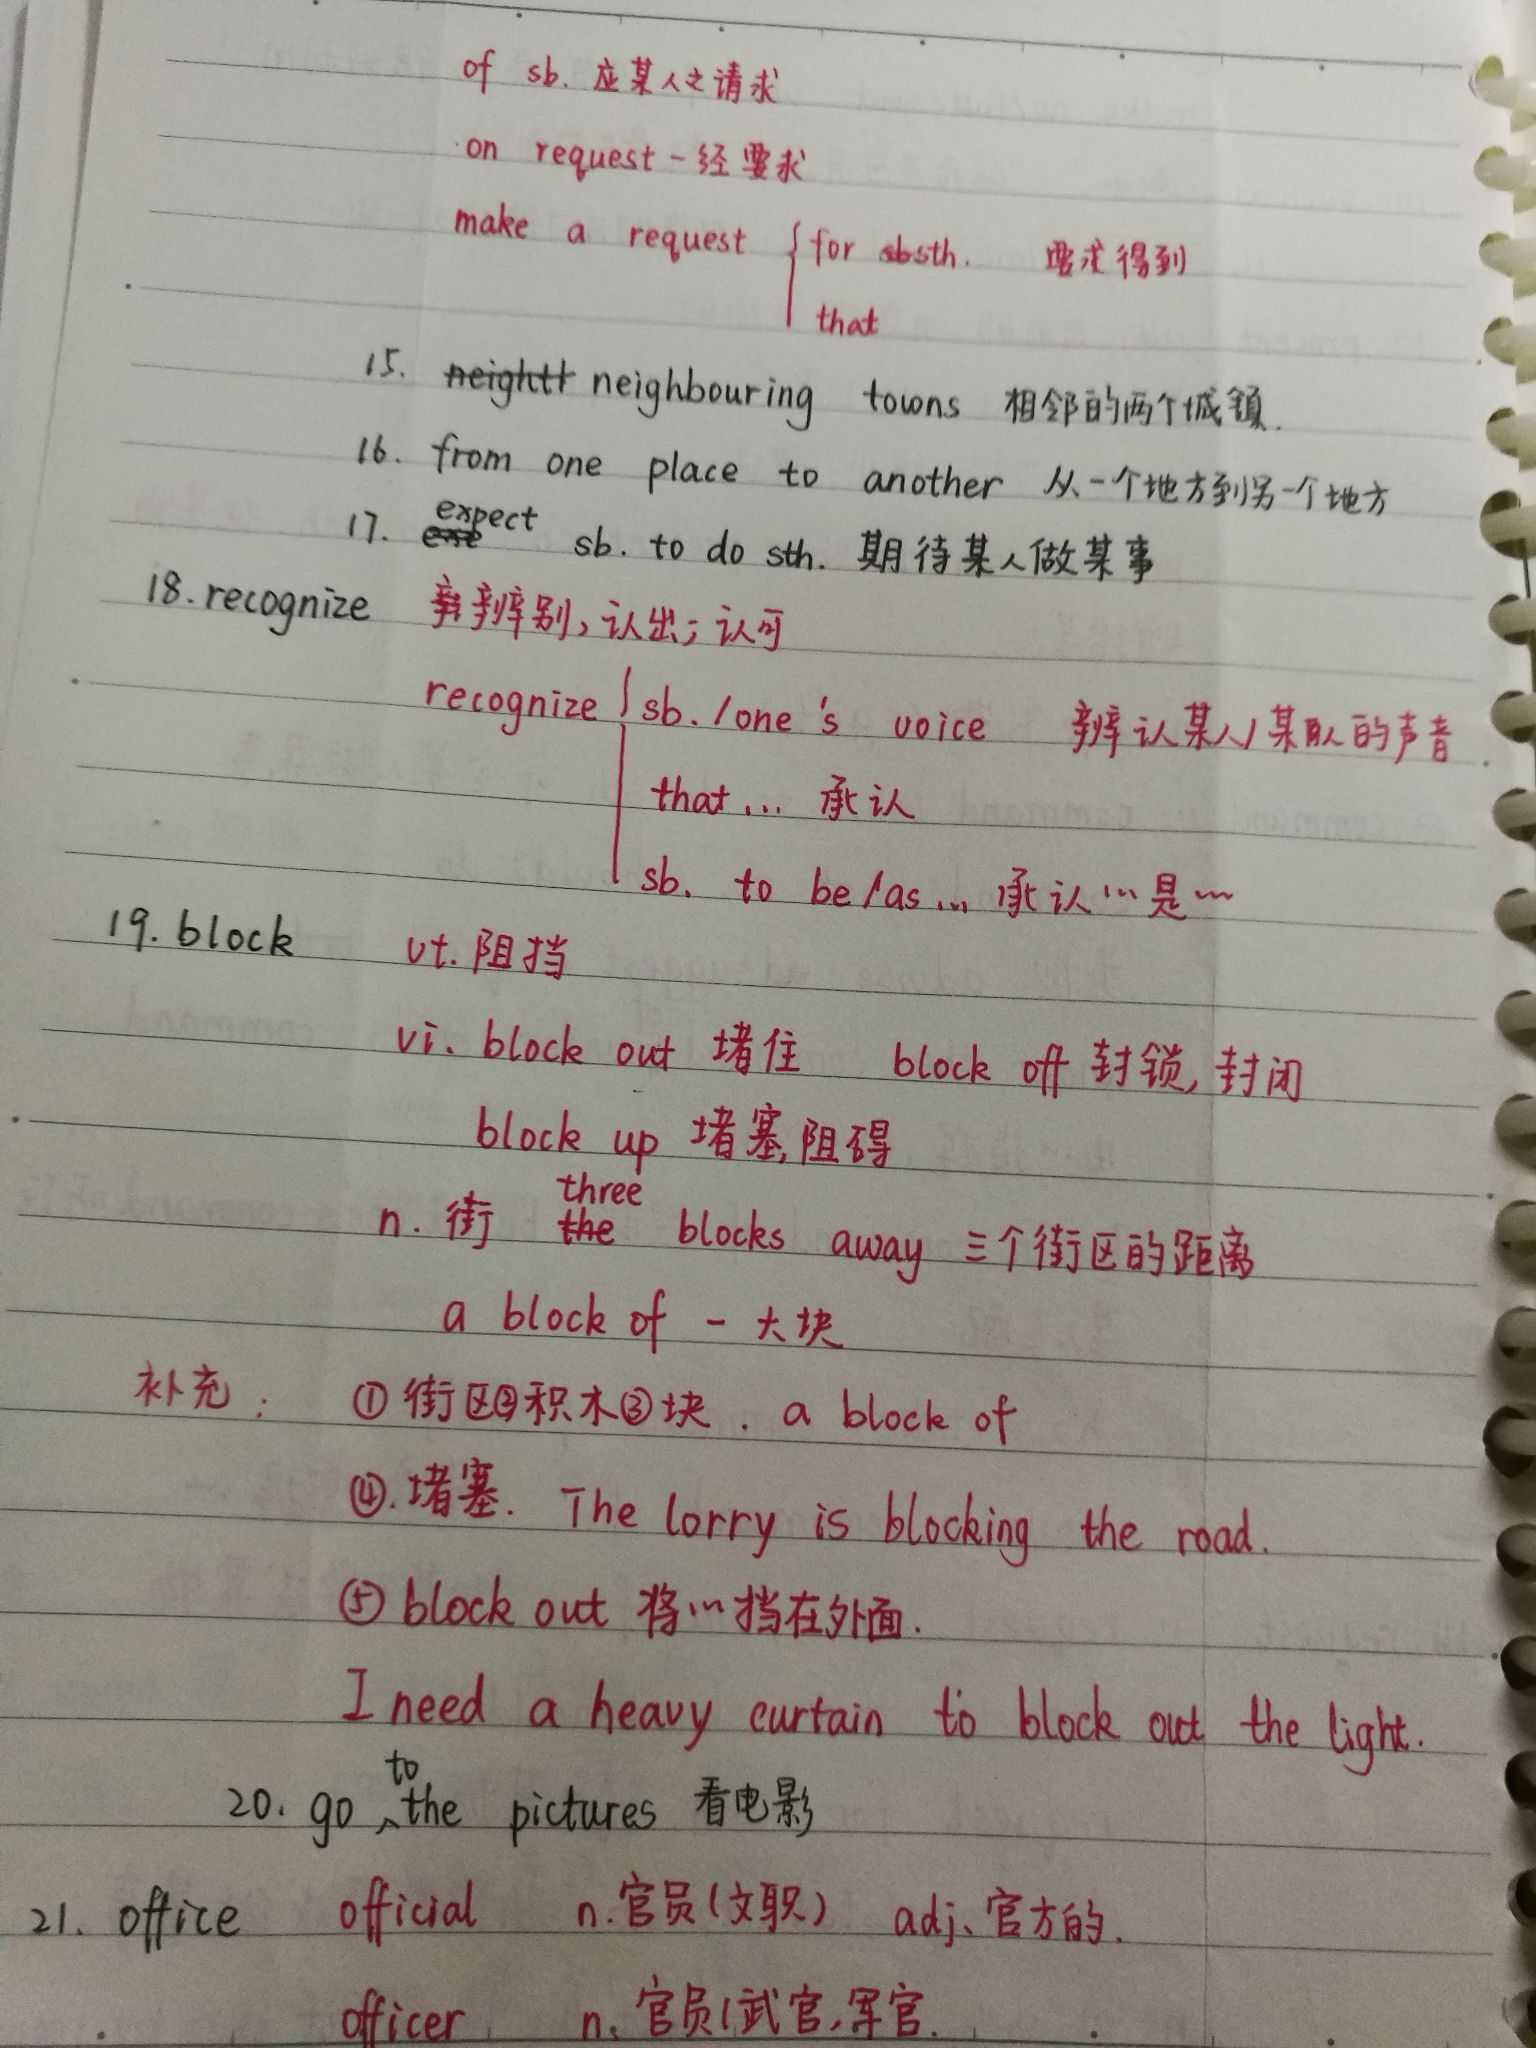 of sb. 应某人之请求
on request - 经要求
make a request { for sth. 要求得到
that
15. neighbouring towns 相邻的两个城镇.
16. from one place to another 从一个地方到另一个地方
17. expect sb. to do sth. 期待某人做某事
18. recognize 辨别,认出;认可
recognize { sb. / one's voice 辨认某人/某队的声音
that... 承认
sb. to be/as... 承认…是…
19. block vt. 阻挡
vi. block out 堵住 block off 封锁,封闭
block up 堵塞,阻碍
n. 街 three blocks away 三个街区的距离
a block of 一大块
补充: ①街区②积木③块. a block of
④.堵塞. The lorry is blocking the road.
⑤ block out 将…挡在外面.
I need a heavy curtain to block out the light.
20. go to the pictures 看电影
21. office official n.官员(文职) adj、官方的.
officer n. 官员(武官,军官.